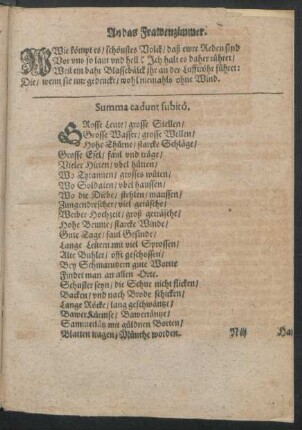 An das Frawenzimmer.
Wie kömpt es / schönstes Volck / daß ewre Reden sind
Vor uns so laut und hell? Ich halt es daher rühret /
Weil ein bahr Blasebälck ihr an der Lufftröhr führet:
Die / wenn sie nur gedruckt / niemahls ohne Wind.
Summa cadunt subitò.
GRosse Leute / grosse Stellen /
Grosse Wasser / grosse Wellen /
Hohe Thürne / starcke Schläge /
Grosse Esel / faul und träge /
Vieler Hirten / übel hüten /
Wo Tyrannen / grosses wüten /
Wo Soldaten / übel haussen /
Wo die Diebe / stehlen / maussen /
Zungendrescher / viel geräsche /
Weiber Hochzeit / groß geräsche /
Hohe Beume / starcke Winde /
Gute Tage / faul Gesinde /
Lange Leitern mit viel Sprossen /
Alte Buhler / offt geschossen /
Bey Schmarutzern gute Worte
Findet man an allen Orte.
Schuster seyn / die Schue nicht flicken /
Backen / und nach Brode schicken /
Lange Röcke / lang geschwäntze /
Bawer Künste / Bawertäntze /
Sammetlätz mit güldnen Borten /
Blatten tragen / Münche worden.